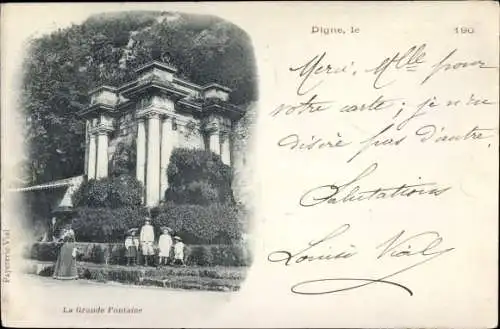 Digne, le 190
Merci, Mlle pour
votre carte; je n'en
désire pas d'autre.
Salutations
Louise Vial
La Grande Fontaine
Papeterie Vial